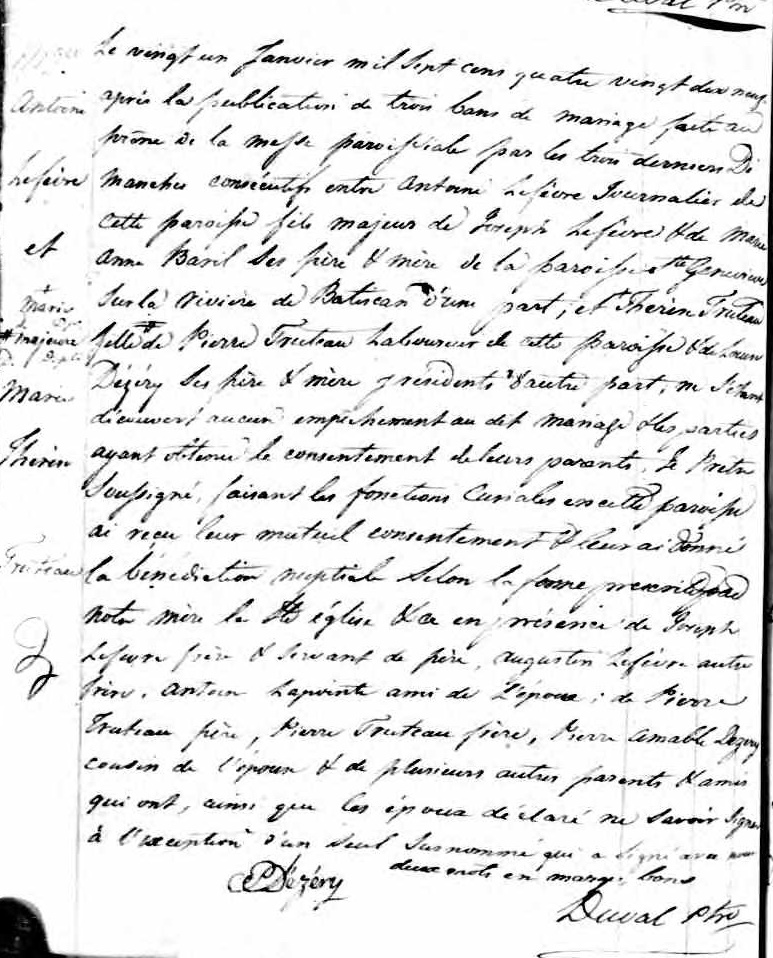 Duval Ptre
Antoine
Lefeivre
et
+
Marie
# majeure
Marie
Therese
Truteau
Le vingt un Janvier mil Sept cens quatre vingt dix neuf
après la publication de trois bans de mariage faite au
prône de la messe paroissiale par les trois derniers Di
manches consécutifs entre Antoine Lefeivre Journalier de
cette paroisse fils majeur de Joseph Lefeivre & de Marie
Anne Baril Ses père & mère de la paroisse Ste Genevieve
Sur la riviere de Batiscan d'une part; et + Therese Truteau
fille # de Pierre Truteau Laboureur de cette paroisse & de Louise
Dézéry Ses père & mère présidents d'autre part; ne S'étant
découvert aucun empêchement au dit mariage & les parties
ayant obtenu le consentement de leurs parents, Je Prêtre
Soussigné, faisant les fonctions Curiales en cette paroisse
ai reçu leur mutuel consentement & leur ai donné
la bénédiction nuptiale Selon la forme prescrite par
notre mère la Ste église & ce en présence de Joseph
Lefeivre frère & Servant de père, Augustin Lefeivre autre
frère, Antoine Lapointe ami de L'époux; de Pierre
Truteau père, Pierre Truteau frère, Pierre Amable Dezery
cousin de l'épouse & de plusieurs autres parents & amis
qui ont, ainsi que les époux déclaré ne Savoir Signer
à l'exception d'un Seul Surnommé qui a Signé avec nous
deux mots en marge, bons
P Dézéry
Duval Ptre